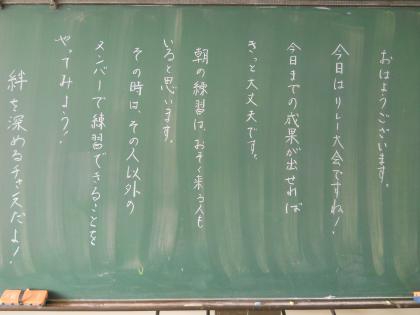 おはようございます。
今日はリレー大会ですね！
今日までの成果が出せれば
きっと大丈夫です。
朝の練習は、おそく来る人も
いると思います。
その時は、その人以外の
メンバーで練習できることを
やってみよう！
絆を深めるチャンスだよ！